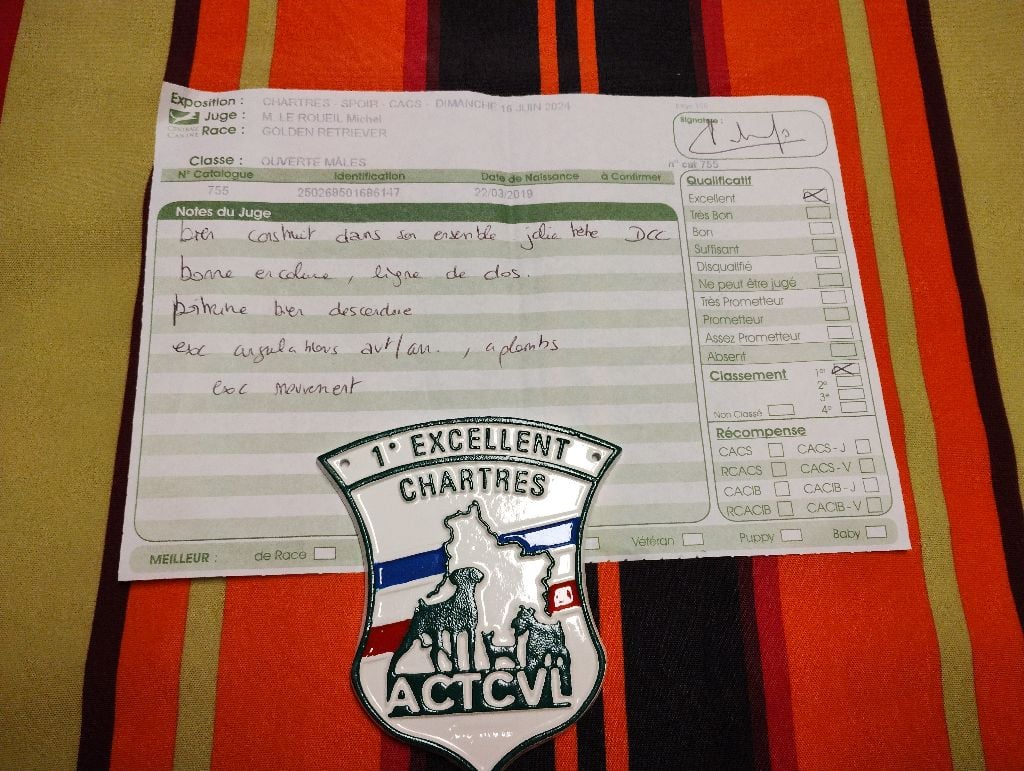 Exposition : CHARTRES - SPOIR - CACS - DIMANCHE 16 JUIN 2024
Juge : M. LE ROUEIL Michel
CENTRALE CANINE
Race : GOLDEN RETRIEVER
Signature :
Classe : OUVERTE MÂLES
n° cat 755
N° Catalogue Identification Date de Naissance à Confirmer
755 250269501686147 22/03/2019
Notes du Juge
bien construit dans son ensemble jolie tête DCC
bonne encolure, ligne de dos.
poitrine bien descendue
exc angulations avt/arr. , aplombs
exc mouvement
Qualificatif
Excellent
Très Bon
Bon
Suffisant
Disqualifié
Ne peut être jugé
Très Prometteur
Prometteur
Assez Prometteur
Absent
Classement 1er
2e
3e
Non Classé 4e
Récompense
CACS CACS - J
RCACS CACS - V
CACIB CACIB - J
RCACIB CACIB - V
MEILLEUR : de Race Vétéran Puppy Baby
1° EXCELLENT
CHARTRES
ACTCVL